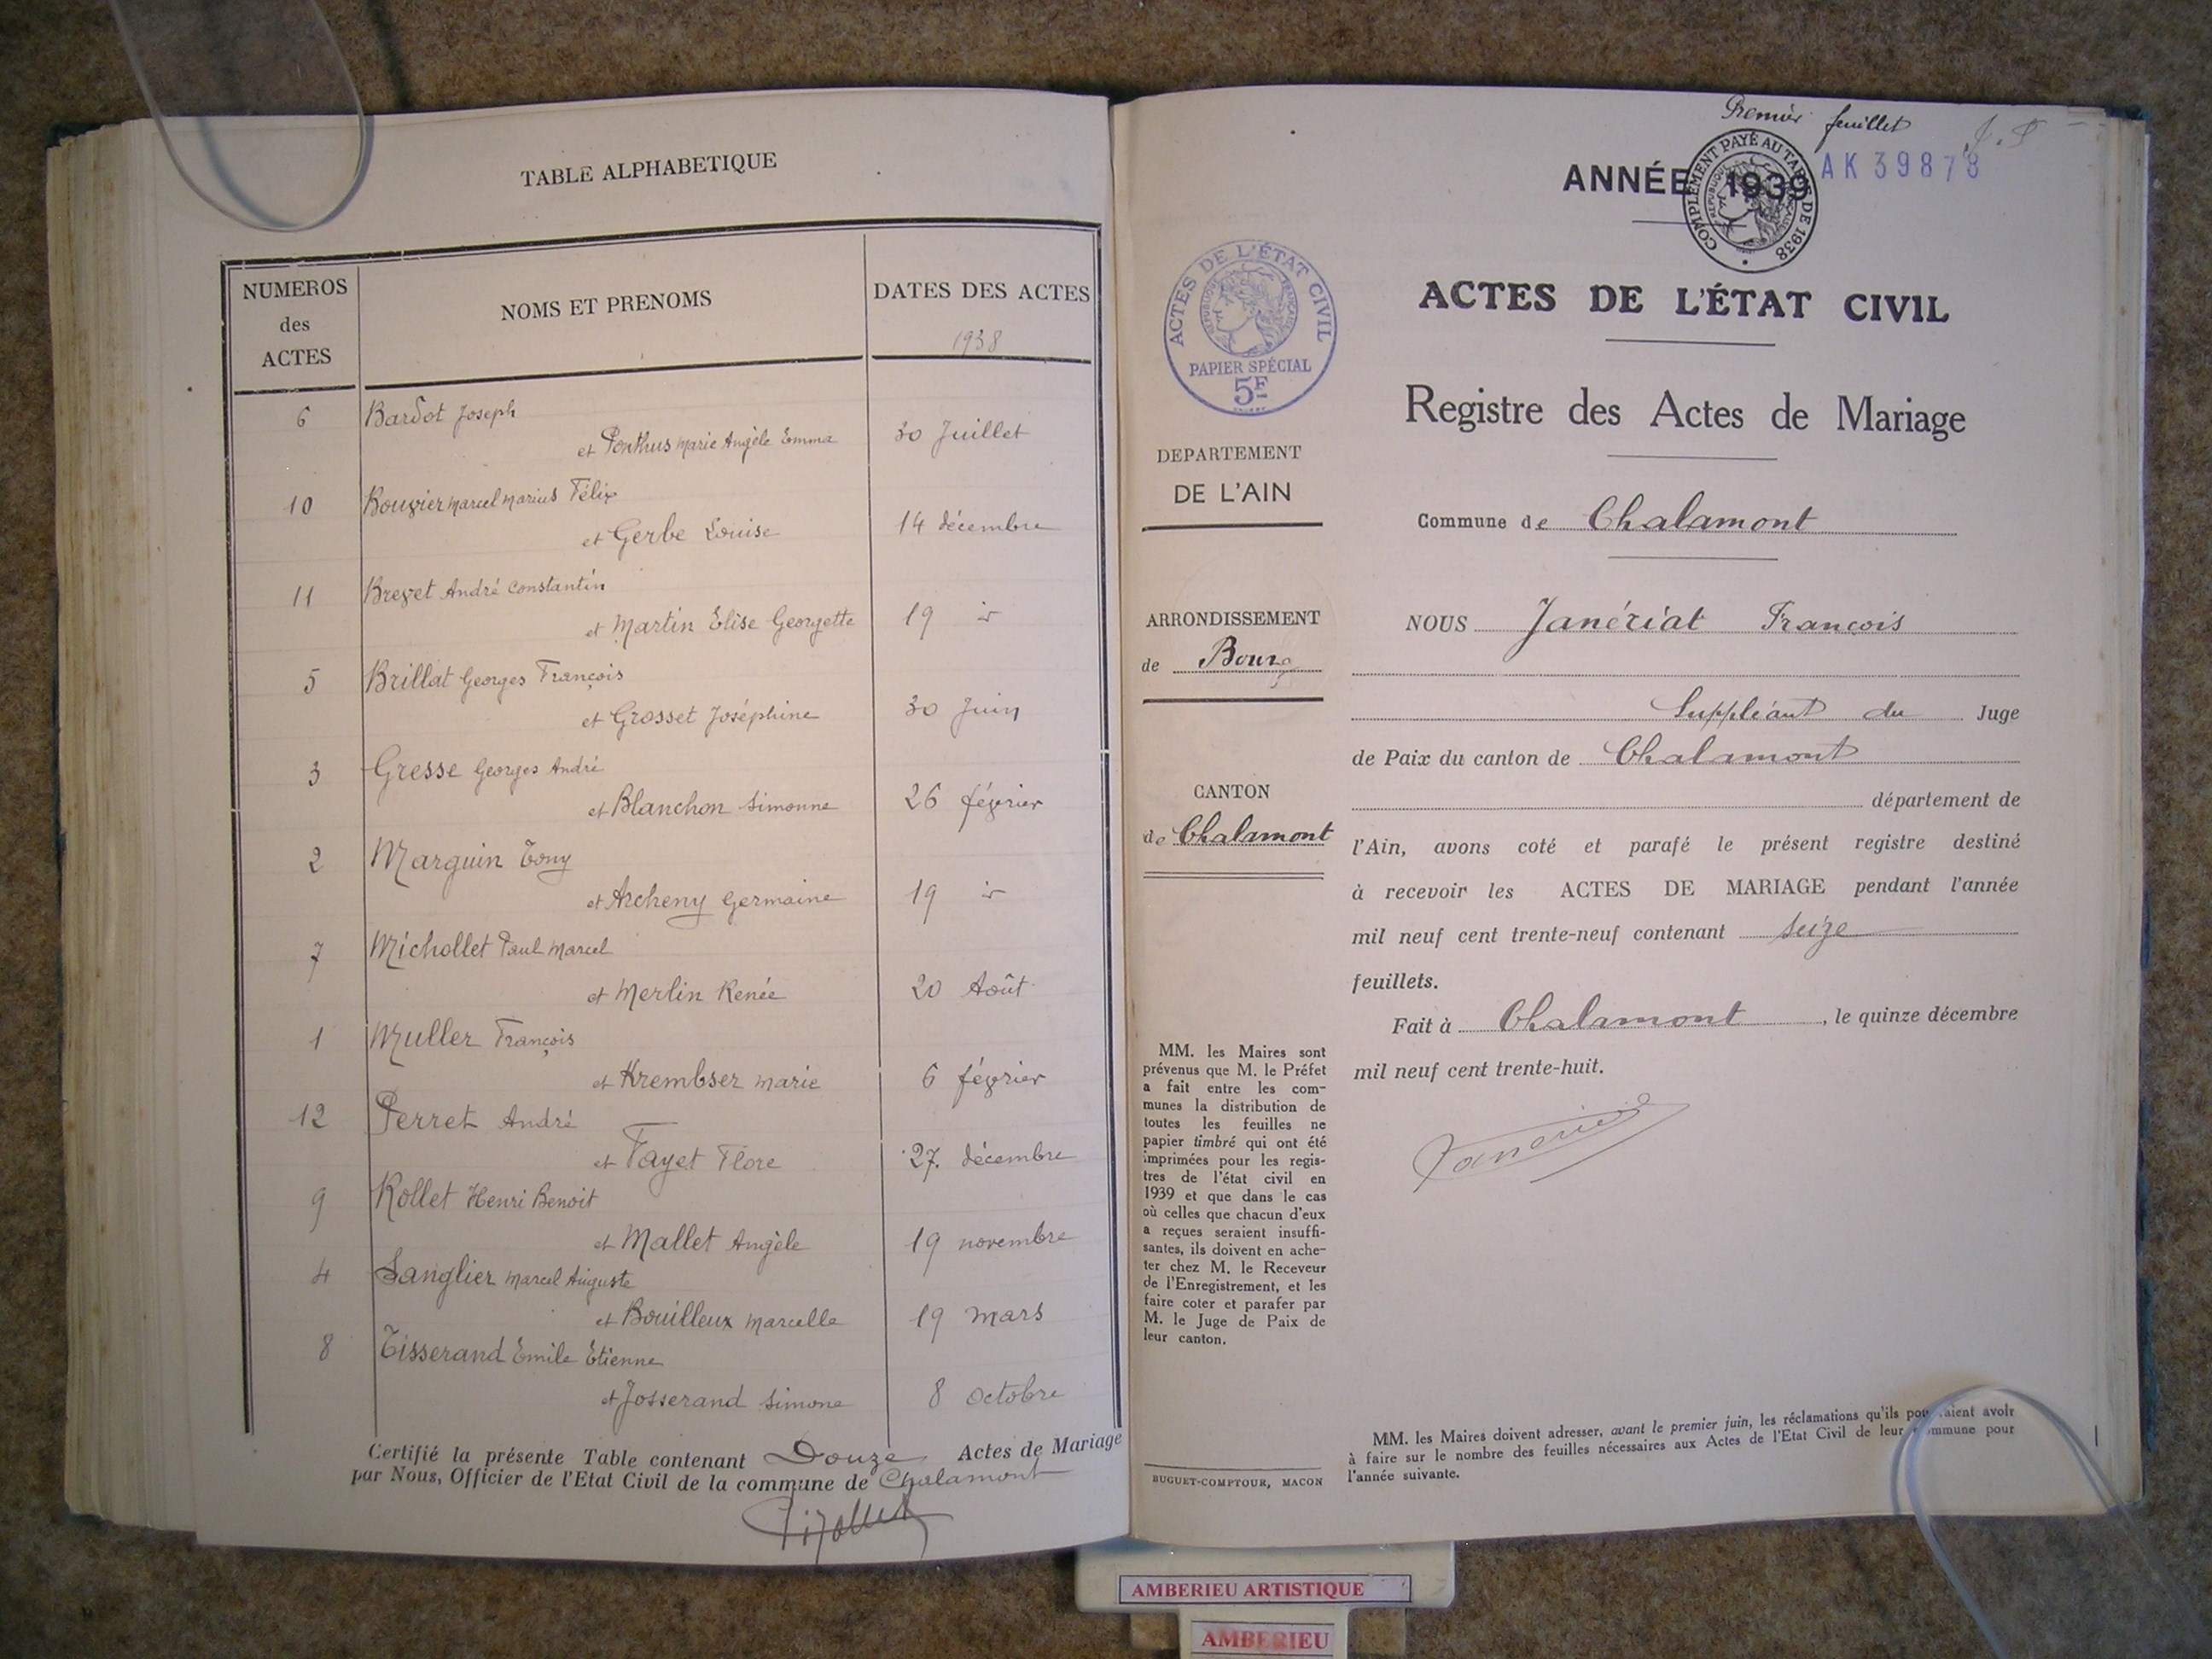 TABLE ALPHABETIQUE
NUMEROS
des
ACTES
NOMS ET PRENOMS
DATES DES ACTES
1938
6 Bardot Joseph
et Ponthus Marie Angèle Emma 30 Juillet
10 Bouvier Marcel Marius Félix
et Gerbe Louise 14 décembre
11 Brevet André Constantin
et Martin Elise Georgette 19 id
5 Brillat Georges François
et Grosset Joséphine 30 Juin
3 Gresse Georges André
et Blanchon Simonne 26 février
2 Marguin Tony
et Archeny Germaine 19 id
7 Michollet Paul Marcel
et Merlin Renée 20 Août
1 Muller François
et Krembser Marie 6 février
12 Perret André
et Fayet Flore 27 décembre
9 Rollet Henri Benoit
et Mallet Angèle 19 novembre
4 Sanglier Marcel Auguste
et Bouilleux Marcelle 19 mars
8 Tisserand Emile Etienne
et Josserand Simone 8 octobre
Certifié la présente Table contenant Douze Actes de Mariage
par Nous, Officier de l'Etat Civil de la commune de Chalamont
Premier feuillet J. P
ANNÉE 1939
COMPLÉMENT PAYÉ AU TARIF DE 1938
AK 39878
ACTES DE L'ÉTAT CIVIL
RÉPUBLIQUE FRANÇAISE
PAPIER SPÉCIAL
5F
DEPARTEMENT
DE L'AIN
ARRONDISSEMENT
de Bourg
CANTON
de Chalamont
MM. les Maires sont
prévenus que M. le Préfet
a fait entre les com-
munes la distribution de
toutes les feuilles ne
papier timbré qui ont été
imprimées pour les regis-
tres de l'état civil en
1939 et que dans le cas
où celles que chacun d'eux
a reçues seraient insuffi-
santes, ils doivent en ache-
ter chez M. le Receveur
de l'Enregistrement, et les
faire coter et parafer par
M. le Juge de Paix de
leur canton.
BUGUET-COMPTOUR, MACON
ACTES DE L'ÉTAT CIVIL
Registre des Actes de Mariage
Commune de Chalamont
NOUS Janériat François
Suppléant du Juge
de Paix du canton de Chalamont
département de
l'Ain, avons coté et parafé le présent registre destiné
à recevoir les ACTES DE MARIAGE pendant l'année
mil neuf cent trente-neuf contenant seize
feuillets.
Fait à Chalamont, le quinze décembre
mil neuf cent trente-huit.
MM. les Maires doivent adresser, avant le premier juin, les réclamations qu'ils pourraient avoir
à faire sur le nombre des feuilles nécessaires aux Actes de l'Etat Civil de leur commune pour
l'année suivante.
AMBERIEU ARTISTIQUE
AMBERIEU